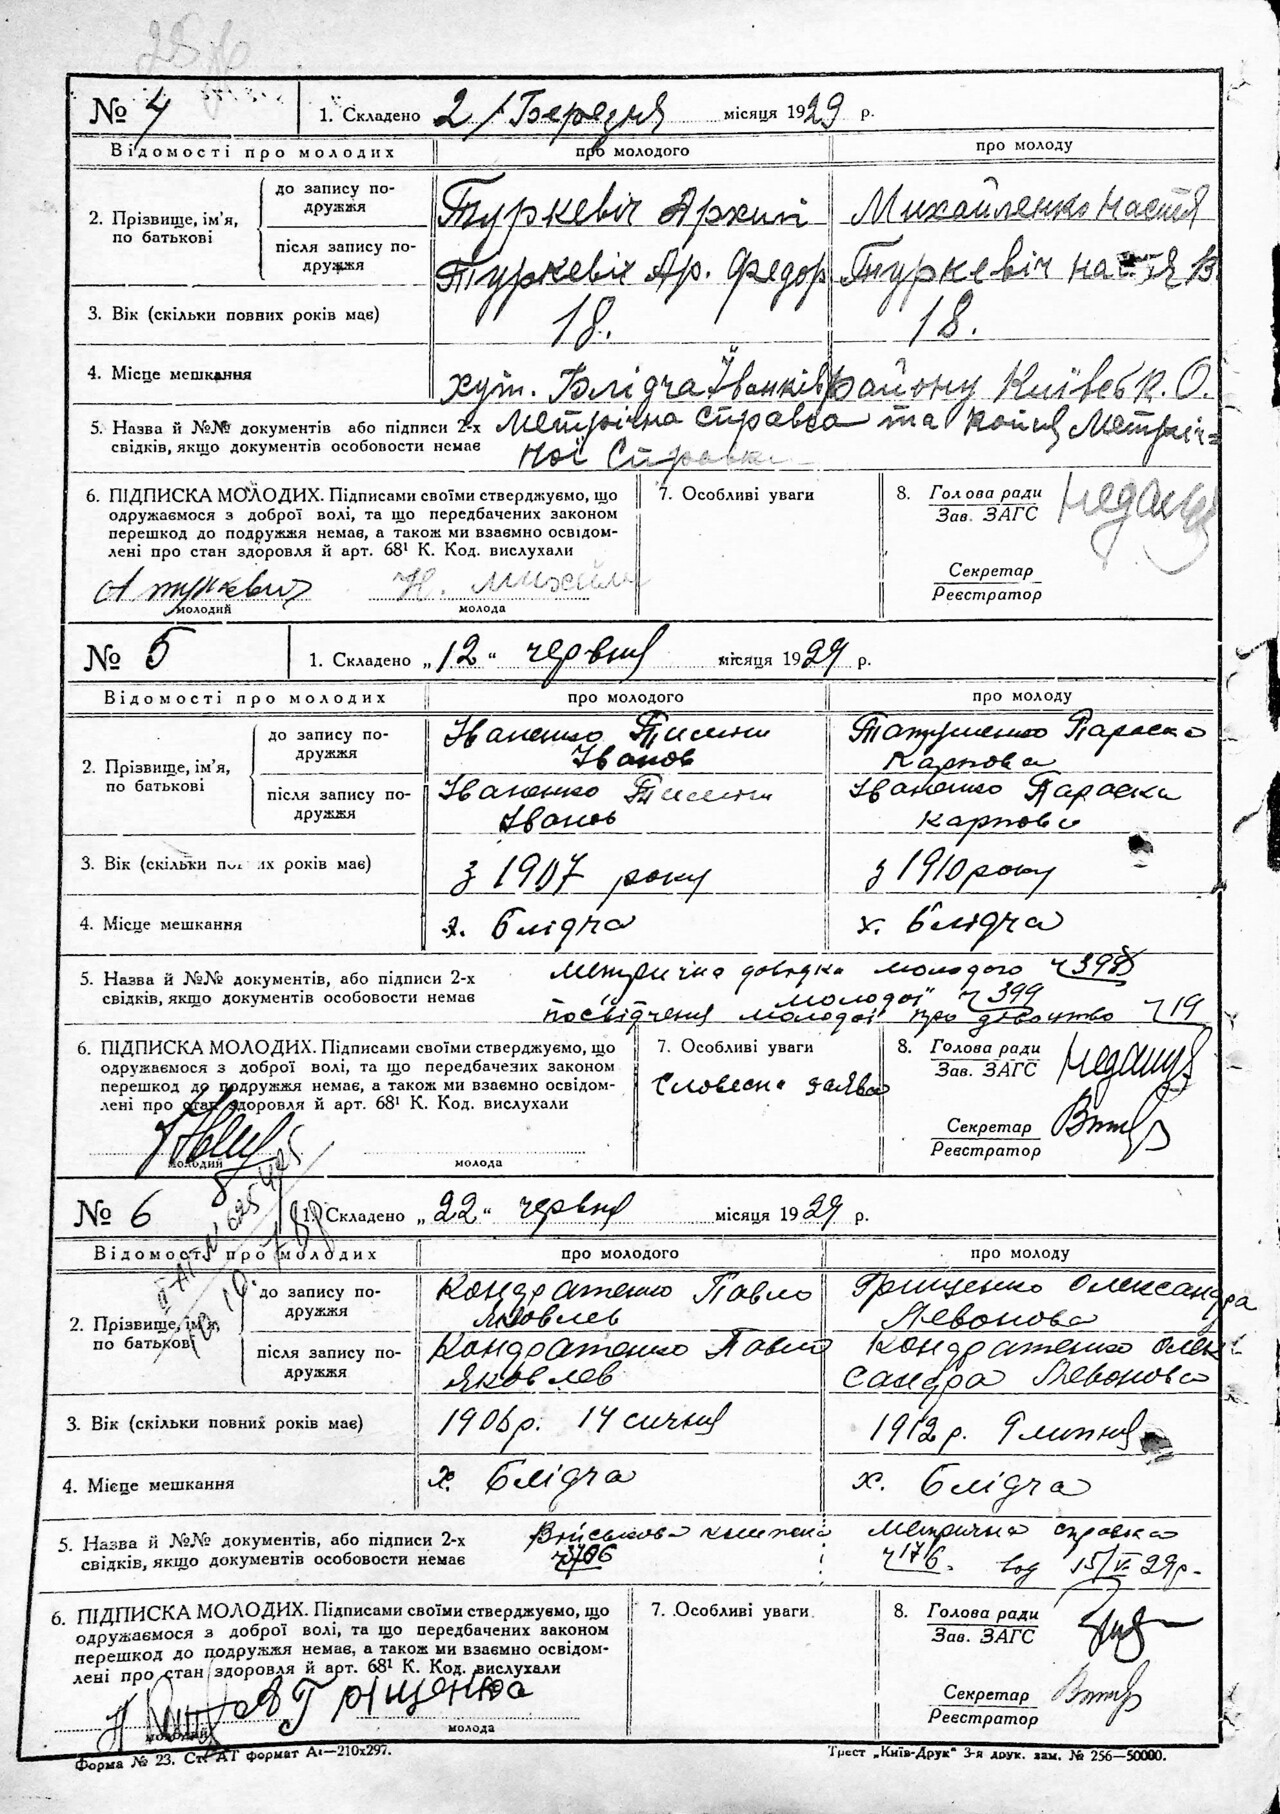 № 4 1. Складено 2/Березня місяця 1929 р.
Відомості про молодих про молодого про молоду
2. Прізвище, ім'я, по батькові
до запису подружжя Туркевіч Архип Михайленко Настя
після запису подружжя Туркевіч Ар. Федор Туркевіч Настя В.
3. Вік (скільки повних років має) 18. 18.
4. Місце мешкання хут. Блідча Іванків району Київськ. О.
5. Назва й №№ документів або підписи 2-х Метрічна справка та копия Метріч=
свідків, якщо документів особовости немає ної Справки
6. ПІДПИСКА МОЛОДИХ. Підписами своїми стверджуємо, що
одружаємося з доброї волі, та що передбачених законом
перешкод до подружжя немає, а також ми взаємно освідом-
лені про стан здоровля й арт. 68¹ К. Код. вислухали
А туркевич Н. Михайле
молодий молода
7. Особливі уваги
8. Голова ради
Зав. ЗАГС
Секретар
Реєстратор
№ 5 1. Складено „12“ червня місяця 1929 р.
Відомості про молодих про молодого про молоду
2. Прізвище, ім'я, по батькові
до запису подружжя Іваненко Іванов Параска Карпова
після запису подружжя Іваненко Іванов Іваненко Параска Карпова
3. Вік (скільки их років має) з 1907 року з 1910 року
4. Місце мешкання х. Блідча х. Блідча
5. Назва й №№ документів, або підписи 2-х Метрична довідка молодого ч 398
свідків, якщо документів особовости немає молодої ч 399
посвідчення молодої про дівоцтво ч 19
6. ПІДПИСКА МОЛОДИХ. Підписами своїми стверджуємо, що
одружаємося з доброї волі, та що передбачених законом
перешкод до подружжя немає, а також ми взаємно освідом-
лені про стан здоровля й арт. 68¹ К. Код. вислухали
молодий молода
7. Особливі уваги
Словесна заява
8. Голова ради
Зав. ЗАГС
Секретар
Реєстратор
№ 6 1. Складено „22“ червня місяця 1929 р.
Відомості про молодих про молодого про молоду
2. Прізвище, ім'я, по батькові
до запису подружжя Кондратенко Павло Яковлев Грищенко Олександра Левонова
після запису подружжя Кондратенко Павло Яковлев Кондратенко Олександра Левонова
3. Вік (скільки повних років має) 1906 р. 14 січня 1912 р. 9 липня
4. Місце мешкання х. Блідча х. Блідча
5. Назва й №№ документів, або підписи 2-х Військова книжка Метрична справка
свідків, якщо документів особовости немає ч 176. вод 15/V-29р.
6. ПІДПИСКА МОЛОДИХ. Підписами своїми стверджуємо, що
одружаємося з доброї волі, та що передбачених законом
перешкод до подружжя немає, а також ми взаємно освідом-
лені про стан здоровля й арт. 68¹ К. Код. вислухали
Гріщенко
молодий молода
7. Особливі уваги
8. Голова ради
Зав. ЗАГС
Секретар
Реєстратор
Форма № 23. Ст. АТ формат А₄—210х297. Трест „Київ-Друк“ 3-я друк. зам. № 256—50000.